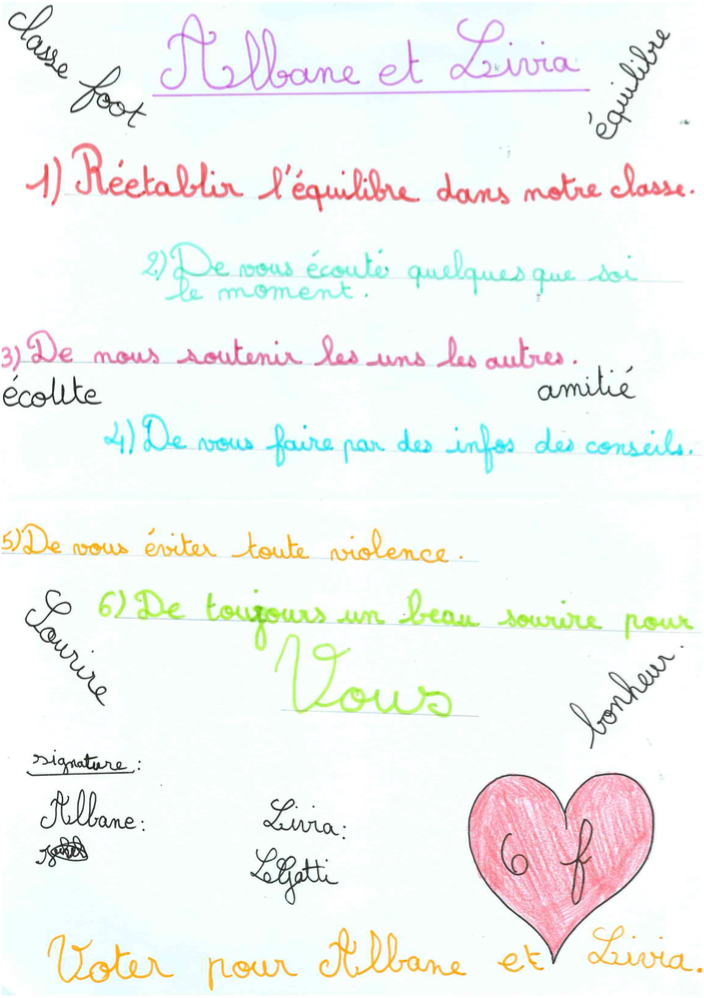 classe foot
Albane et Livia
équilibre
1) Réetablir l'équilibre dans notre classe.
2) De vous écouté quelques que soi
le moment.
3) De nous soutenir les uns les autres.
écoute
amitié
4) De vous faire par des infos des conseils.
5) De vous éviter toute violence.
6) De toujours un beau sourire pour
Vous
Sourire
bonheur.
signature :
Albane :
Livia :
LGatti
6 f
Voter pour Albane et Livia.